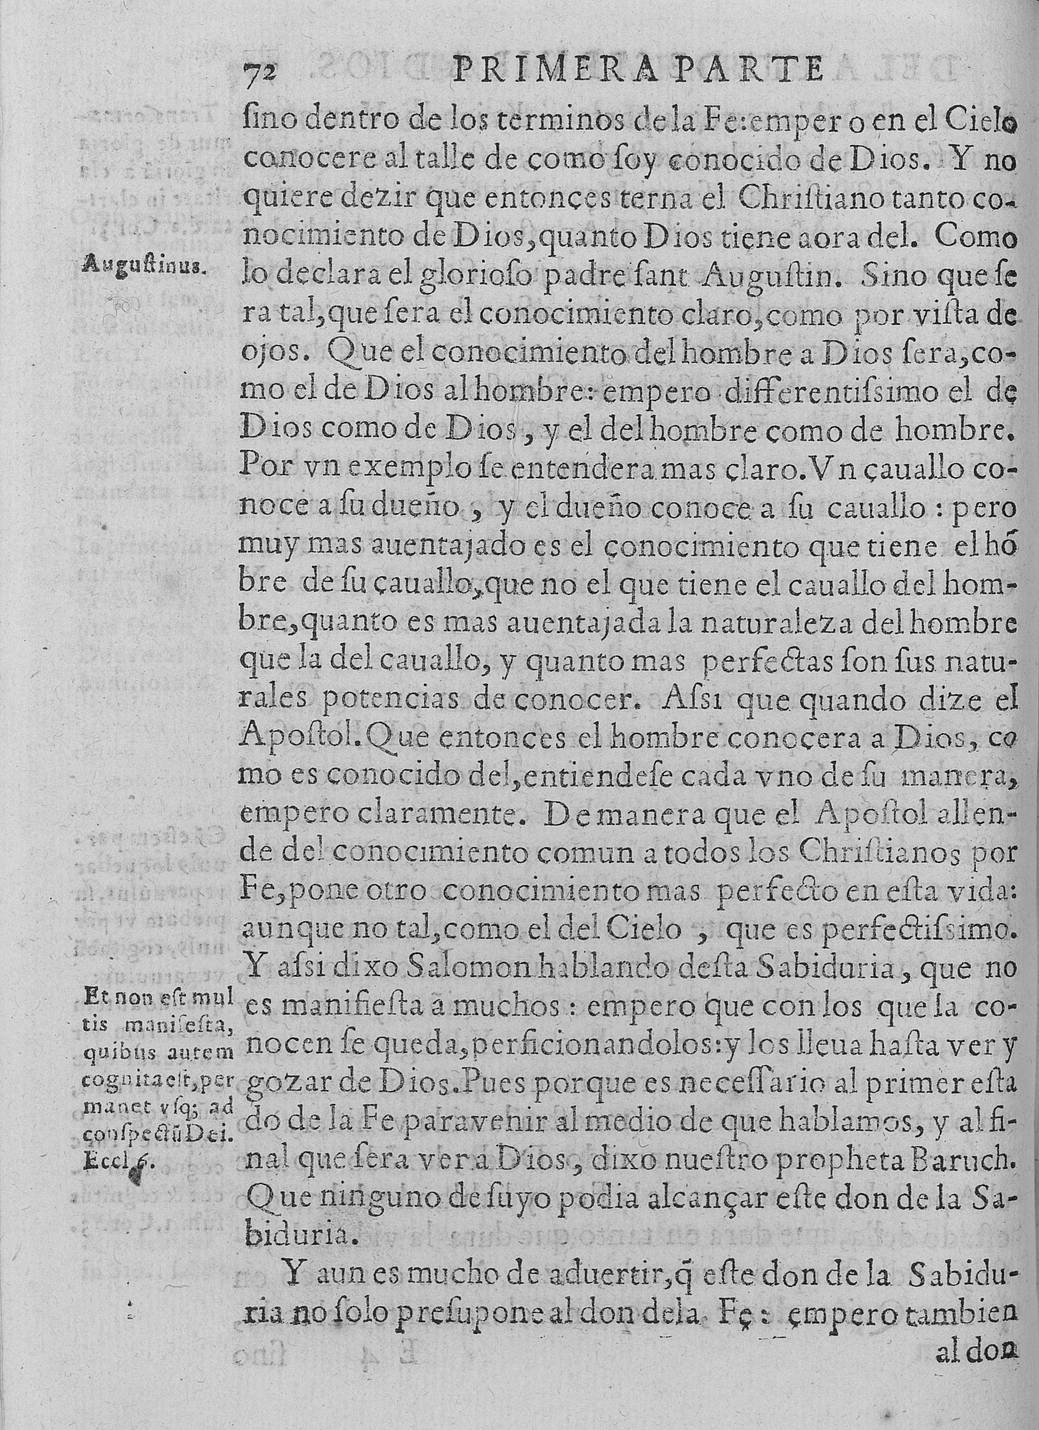 72 PRIMERA PARTE
ſino dentro de los terminos de la Fe: empero en el Cielo
conocere al talle de como ſoy conocido de Dios. Y no
quiere dezir que entonces terna el Chriſtiano tanto co-
nocimiento de Dios, quanto Dios tiene aora del. Como
Auguſtinus.
lo declara el glorioſo padre ſant Auguſtin. Sino que ſe
ra tal, que ſera el conocimiento claro, como por viſta de
ojos. Que el conocimiento del hombre a Dios ſera, co-
mo el de Dios al hombre: empero differentiſsimo el de
Dios como de Dios, y el del hombre como de hombre.
Por vn exemplo ſe entendera mas claro. Vn cauallo co-
noce a ſu dueño, y el dueño conoce a ſu cauallo: pero
muy mas auentajado es el conocimiento que tiene el hõ
bre de ſu cauallo, que no el que tiene el cauallo del hom-
bre, quanto es mas auentajada la naturaleza del hombre
que la del cauallo, y quanto mas perfectas ſon ſus natu-
rales potencias de conocer. Aſsi que quando dize el
Apoſtol. Que entonces el hombre conocera a Dios, co
mo es conocido del, entiendeſe cada vno de ſu manera,
empero claramente. De manera que el Apoſtol allen-
de del conocimiento comun a todos los Chriſtianos por
Fe, pone otro conocimiento mas perfecto en eſta vida:
aunque no tal, como el del Cielo, que es perfectiſsimo.
Y aſsi dixo Salomon hablando deſta Sabiduria, que no
es manifieſta a muchos: empero que con los que la co-
nocen ſe queda, perficionandolos: y los lleua haſta ver y
gozar de Dios. Pues porque es neceſſario al primer eſta
do de la Fe para venir al medio de que hablamos, y al fi-
nal que ſera ver a Dios, dixo nueſtro propheta Baruch.
Que ninguno de ſuyo podia alcançar eſte don de la Sa-
biduria.
Et non eſt mul
tis manifeſta,
quibus autem
cognita eſt, per
manet vſq; ad
conſpectũ Dei.
Eccl. 6.
Y aun es mucho de aduertir, q̃ eſte don de la Sabidu-
ria no ſolo preſupone al don de la Fe: empero tambien
al don